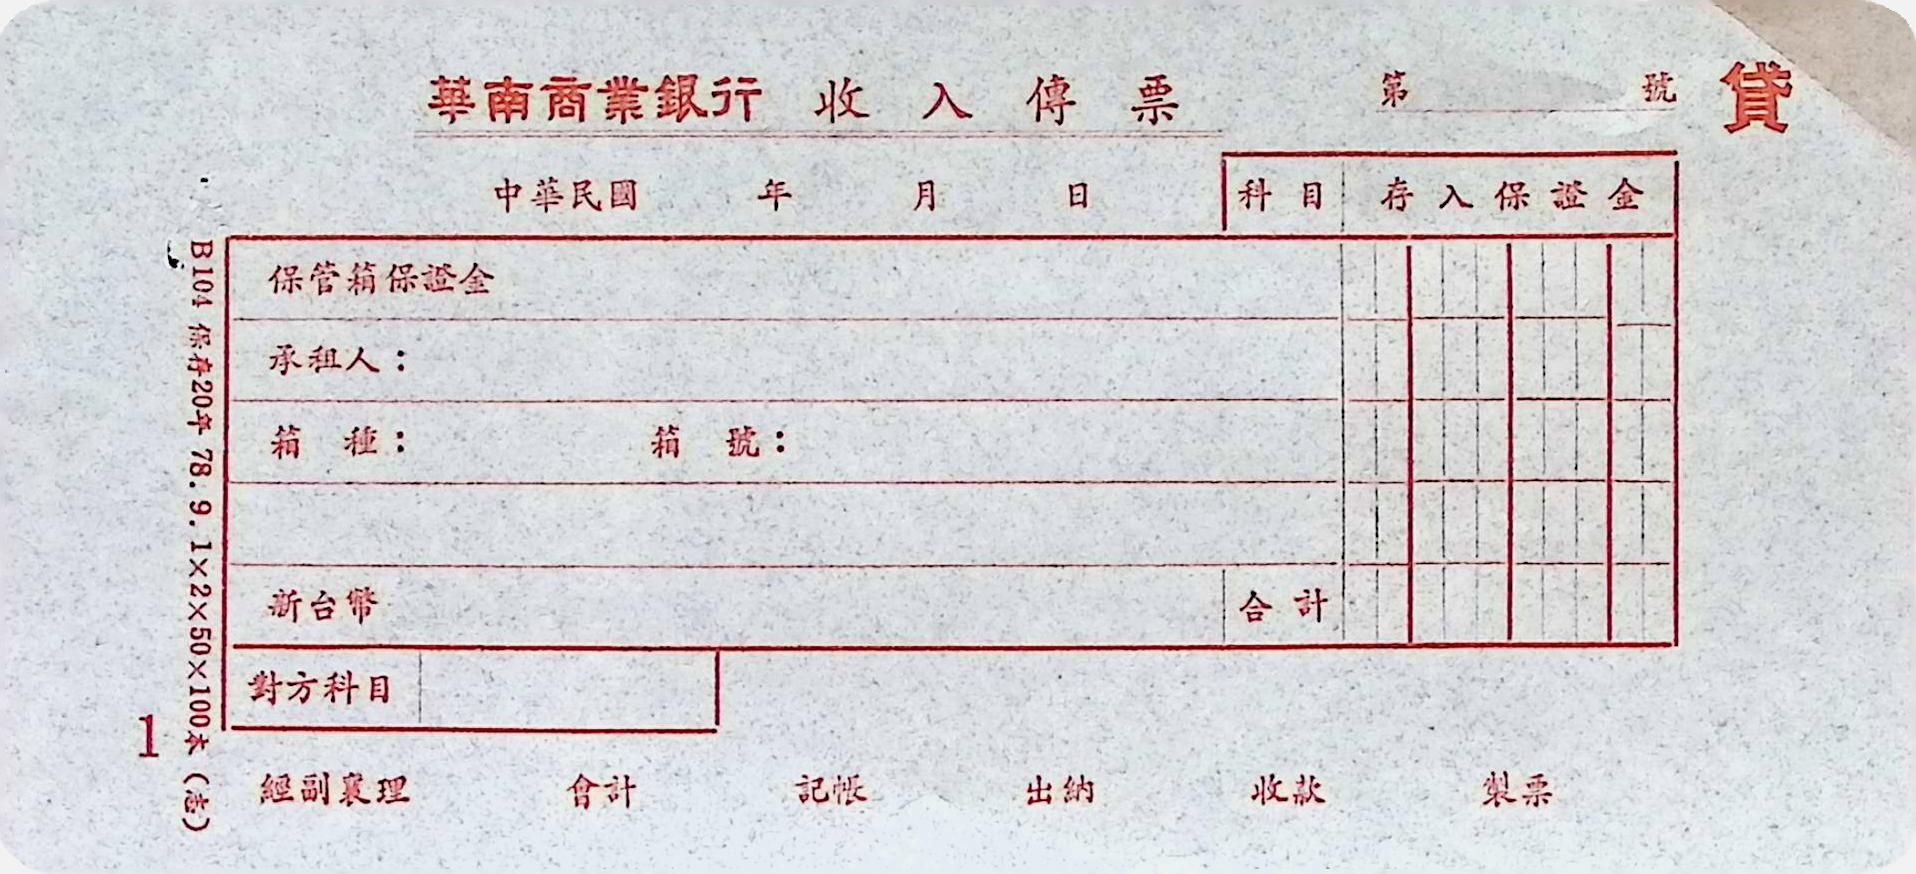 華南商業銀行 收入傳票 第 號 貸
中華民國 年 月 日 科目 存入保證金
保管箱保證金
承租人：
箱 種： 箱 號：
新台幣 合計
對方科目
經副襄理 會計 記帳 出納 收款 製票
B104 保存20年 78.9.1×2×50×100本（志）
1